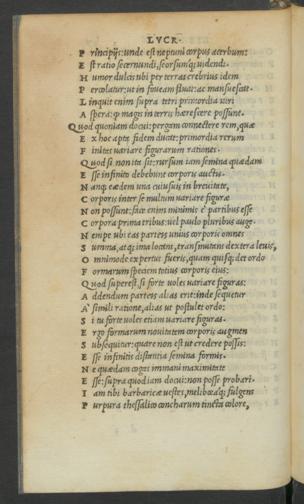 LVCR.
P rincipijs: unde est neptuni corpus acerbum:
E st ratio secernundi, seorsumq; uidendi.
H umor dulcis ubi per terras crebrius idem
P ercolatur: ut in foueam fluat: ac mansuescat.
L inquit enim supra tetri primordia uiri
A spera: q̃ magis in terris hærescere possunt.
Quod quoniam docui: pergam connectere rem, quæ
E x hoc apta fidem ducat: primordia rerum
F inites uariare figurarum rationes.
Quod si non ita sit: rursum iam semina quædam
E sse infinito debebunt corporis auctu.
N anq; eadem una cuiusuis in breuitate,
C orporis inter se multum uariare figuræ
N on possunt: fac enim minimis e partibus esse
C orpora prima tribus: uel paulo pluribus auge.
N empe ubi eas partes unius corporis omnes
S umma, atq; ima locans, transmutans dextera leuis,
O mnimode expertus fueris, quam quisq; det ordo
F ormarum speciem totius corporis eius:
Quod superest, si forte uoles uariare figuras:
A ddendum partes alias erit: inde sequetur
A simili ratione, alias ut postulet ordo:
S i tu forte uoles etiam uariare figuras.
E rgo formarum nouitatem corporis augmen
S ubsequitur: quare non est ut credere possis:
E sse infinitis distantia semina formis.
N e quædam cogas immani maximitate
E sse: supra quod iam docui: non posse probari.
I am tibi barbaricæ uestes, melibœaq; fulgens
P urpura thessalico concharum tincta colore,